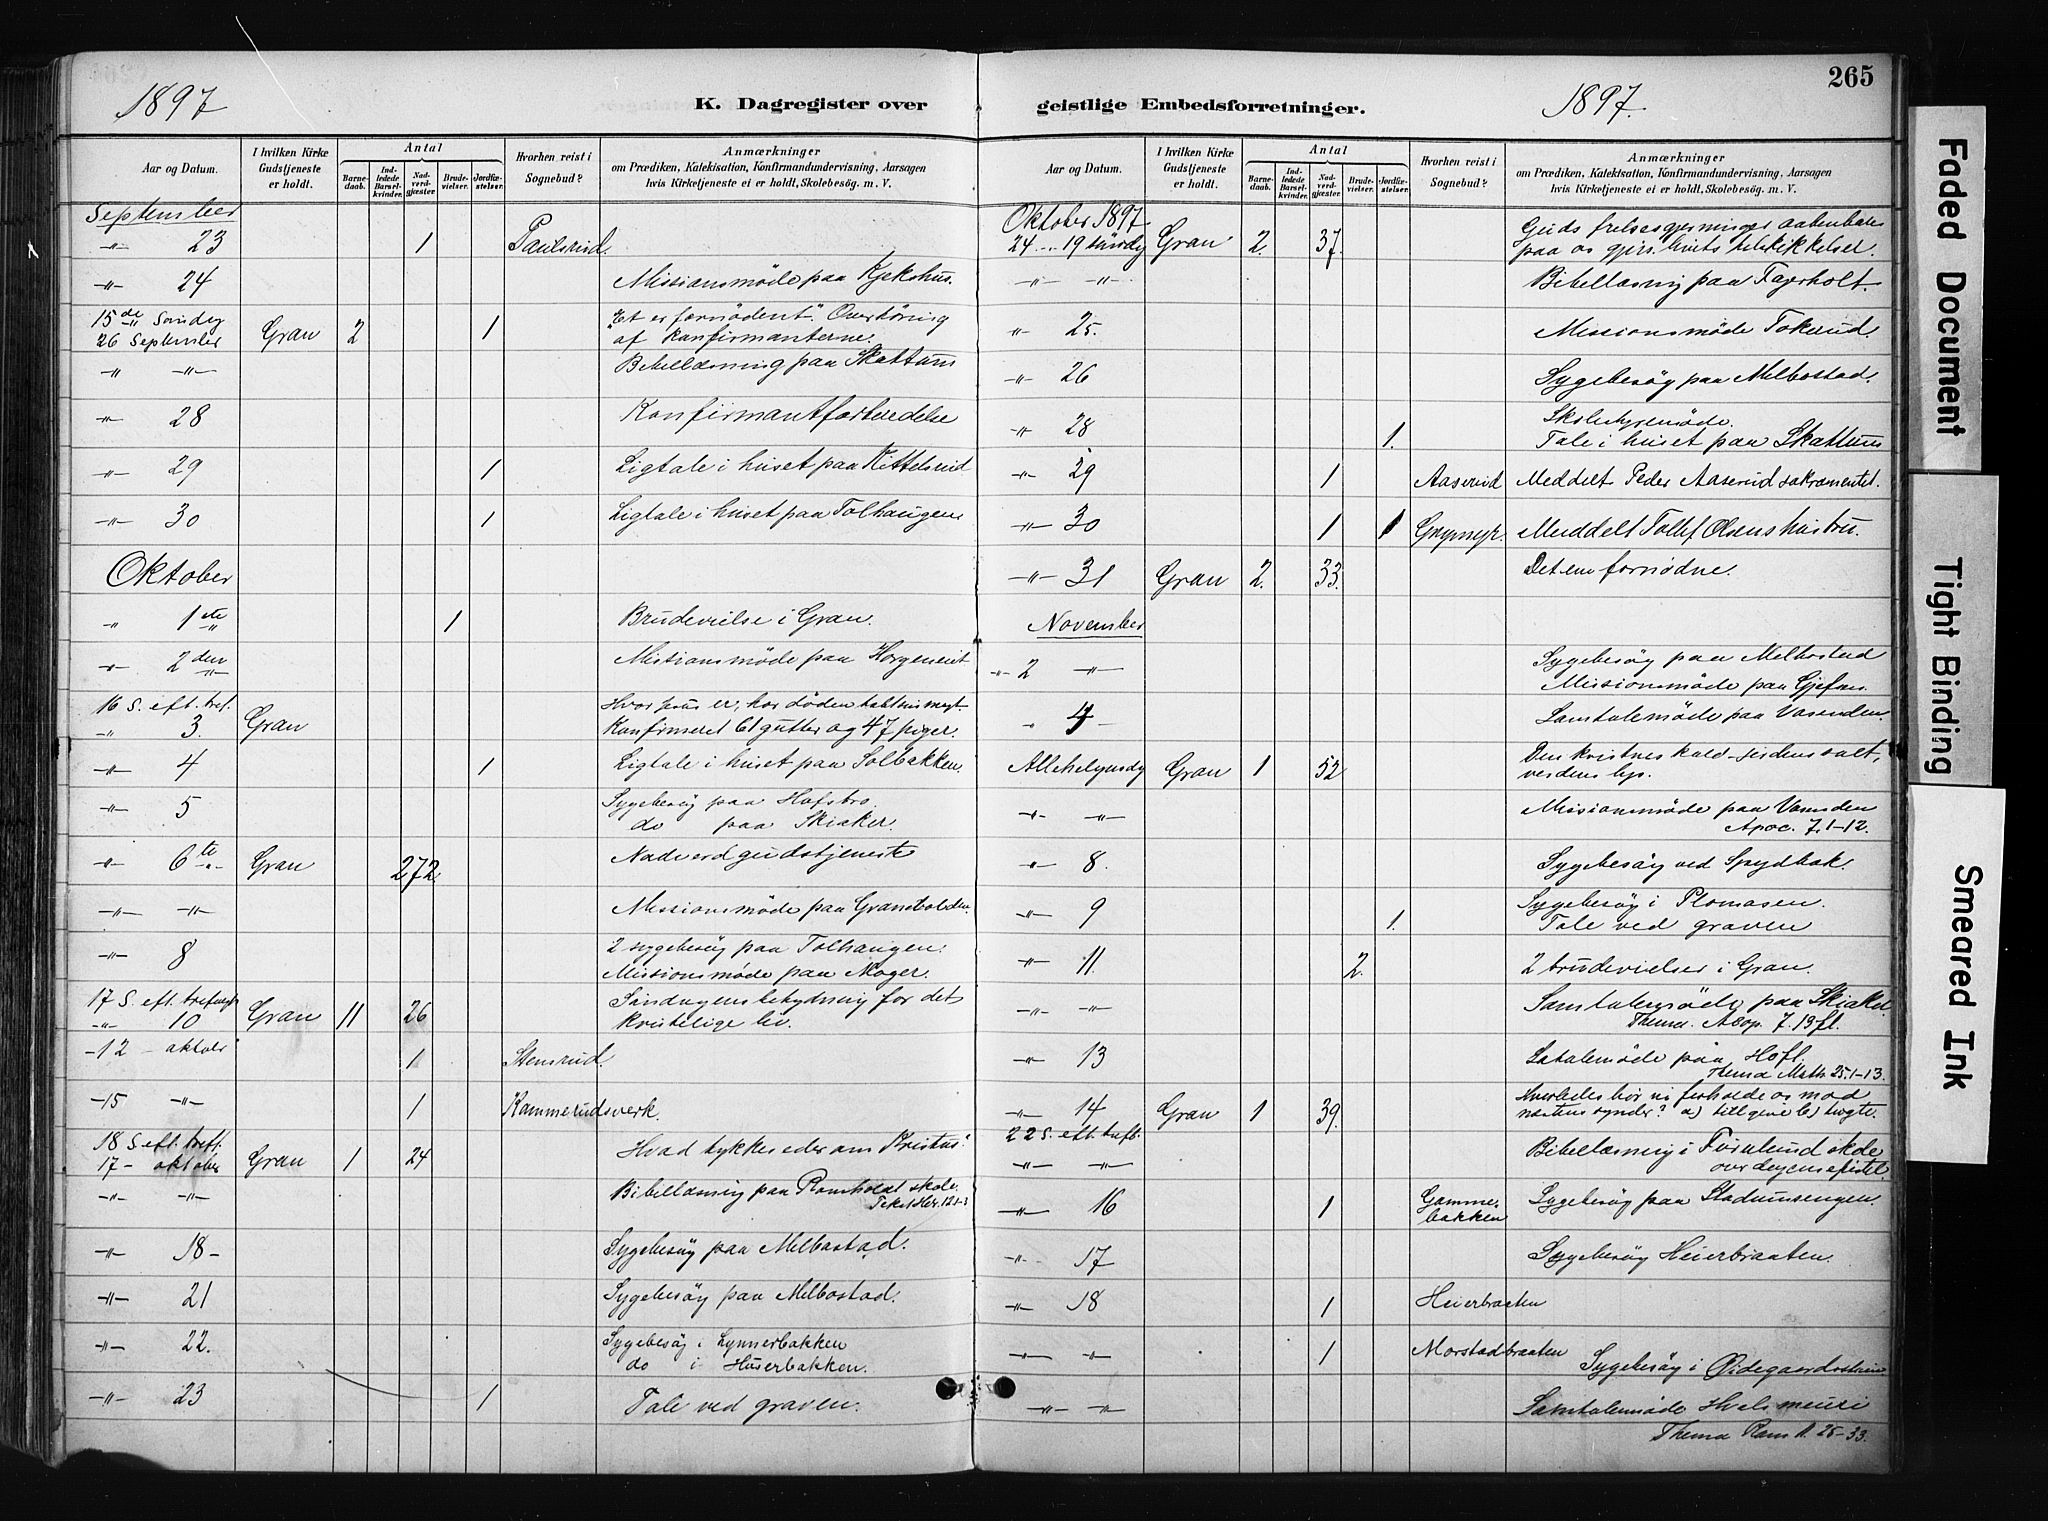 1897
K. Dagregister over
Aar og Datum.
I hvilken Kirke Gudstjeneste er holdt.
Antal
Barnedaab.
Indledede Barselkvinder.
Nadverdgjester
Brudevielser.
Jordfæstelser.
Hvorhen reist i Sognebud?
Anmærkninger
om Prædiken, Katekisation, Konfirmandundervisning, Aarsagen
hvis Kirketjeneste ei er holdt, Skolebesøg. m. V.
September
-"- 23 1 Paulsrud.
-"- 24 Missionsmöde paa Kjekshus.
15de Søndag Et er fornødent. Overhöring
26 September Gran 2 1 af konfirmanterne.
" -"- Bibellæsning paa Skattum
-"- 28 Konfirmantforberedelse
-"- 29 1 Ligtale i huset paa Kittelsrud
-"- 30 1 Ligtale i huset paa Tolhaugen
Oktober
" 1ste 1 Brudevielse i Gran.
-"- 2den Missionsmöde paa Horgeneiet
16 S. eft. tref. Hvor er, har döden
" 3. Gran Konfirmeret 61 gutter og 47 piger.
-"- 4 1 Ligtale i huset paa Solbakken.
-"- 5 Sygebesög paa Hofsbro.
do paa Skiaker.
-"- 6te Gran 272 Nadverdgudstjeneste
-"- -"- Missionsmöde paa Granebolden.
-"- 8 2 sygebesög paa Tolhaugen.
Missionsmöde paa Moger.
17 S. eft. Söndagens betydning for det
-"- 10 Gran 11 26 kristelige liv.
-12 - oktober 1 Stensrud.
-15 -"- 1 Kammerudsverk
18 S. eft. tref. Hvad tykkes eder om Kristus?
17 - oktober Gran 1 24
-"- -"- Bibellæsning paa Romholdt skole.
Tekst Her. 12 1-3
-"- 18 - Sygebesög paa Melbostad.
-"- 21 Sygebesög paa Melbostad.
-"- 22. Sygebesög i Lynnerbakken
do i Huserbakken.
-"- 23 1 Tale ved graven.
1897.
265
geistlige Embedsforretninger.
Aar og Datum.
I hvilken Kirke Gudstjeneste er holdt.
Antal
Barnedaab.
Indledede Barselkvinder.
Nadverdgjester.
Brudevielser.
Jordfæstelser.
Hvorhen reist i Sognebud?
Anmærkninger
om Prædiken, Katekisation, Konfirmandundervisning, Aarsagen
hvis Kirketjeneste ei er holdt, Skolebesøg. m. V.
Oktober 1897 Guds frelsesgjerninger aabenbares
24 -"- 19 söndg Gran 2. 37. paa os gjen. livets tilskikkelser.
-"- -"- Bibellæsning paa Fagerholt.
-"- 25. Missionsmöde Tokerud.
-"- 26 Sygebesög paa Melbostad.
Skolestyremöde.
-"- 28 1. Tale i huset paa Skattum
-"- 29 1 Aaserud Meddelt Peder Aaserud sakramentet.
-"- 30 1 1 Grymyr. Meddelt Tollef Olsens hustru.
-"- 31 Gran 2. 33. Det ene fornødne.
November
-"- 2 -"- Sygebesög paa Melbostad
Missionsmöde paa Gjefnes.
" 4 Samtalemöde paa Vasenden.
Allehelgensdg Gran 1 52 Den kristnes kald - jordens salt,
verdens lys.
-"- -"- Missionsmöde paa Vasenden
Apoc. 7. 1-12.
-"- 8. Sygebesög ved Spydbak.
-"- 9 1. Sygebesög i Plomasen.
Tale ved graven
-"- 11. 2. 2 brudevielser i Gran.
-"- -"- Samtalemöde paa Skiaker.
Thema. 7. 13 fl.
-"- 13 Satalemöde paa Hofl.
Thema Math. 25. 1-13.
-"- 14 Gran 1 39. Hvorledes bör vi forholde os mod
næstens synder? a) tillgive b) tugte.
22 S. eft. trefl. Bibellæsning i skole
-"- -"- over dagens epistel.
-"- 16 1 Gamme- Sygebesög paa Stadumsengen.
bakken
-"- 17 Sygebesög Heierbraaten.
-"- 18 1 Heierbraaten
-"- -"- 1 Morstadbraaten Sygebesög i
-"- -"- Samtalemöde
Thema Rom 25-33.
Faded Document
Tight Binding
Smeared Ink